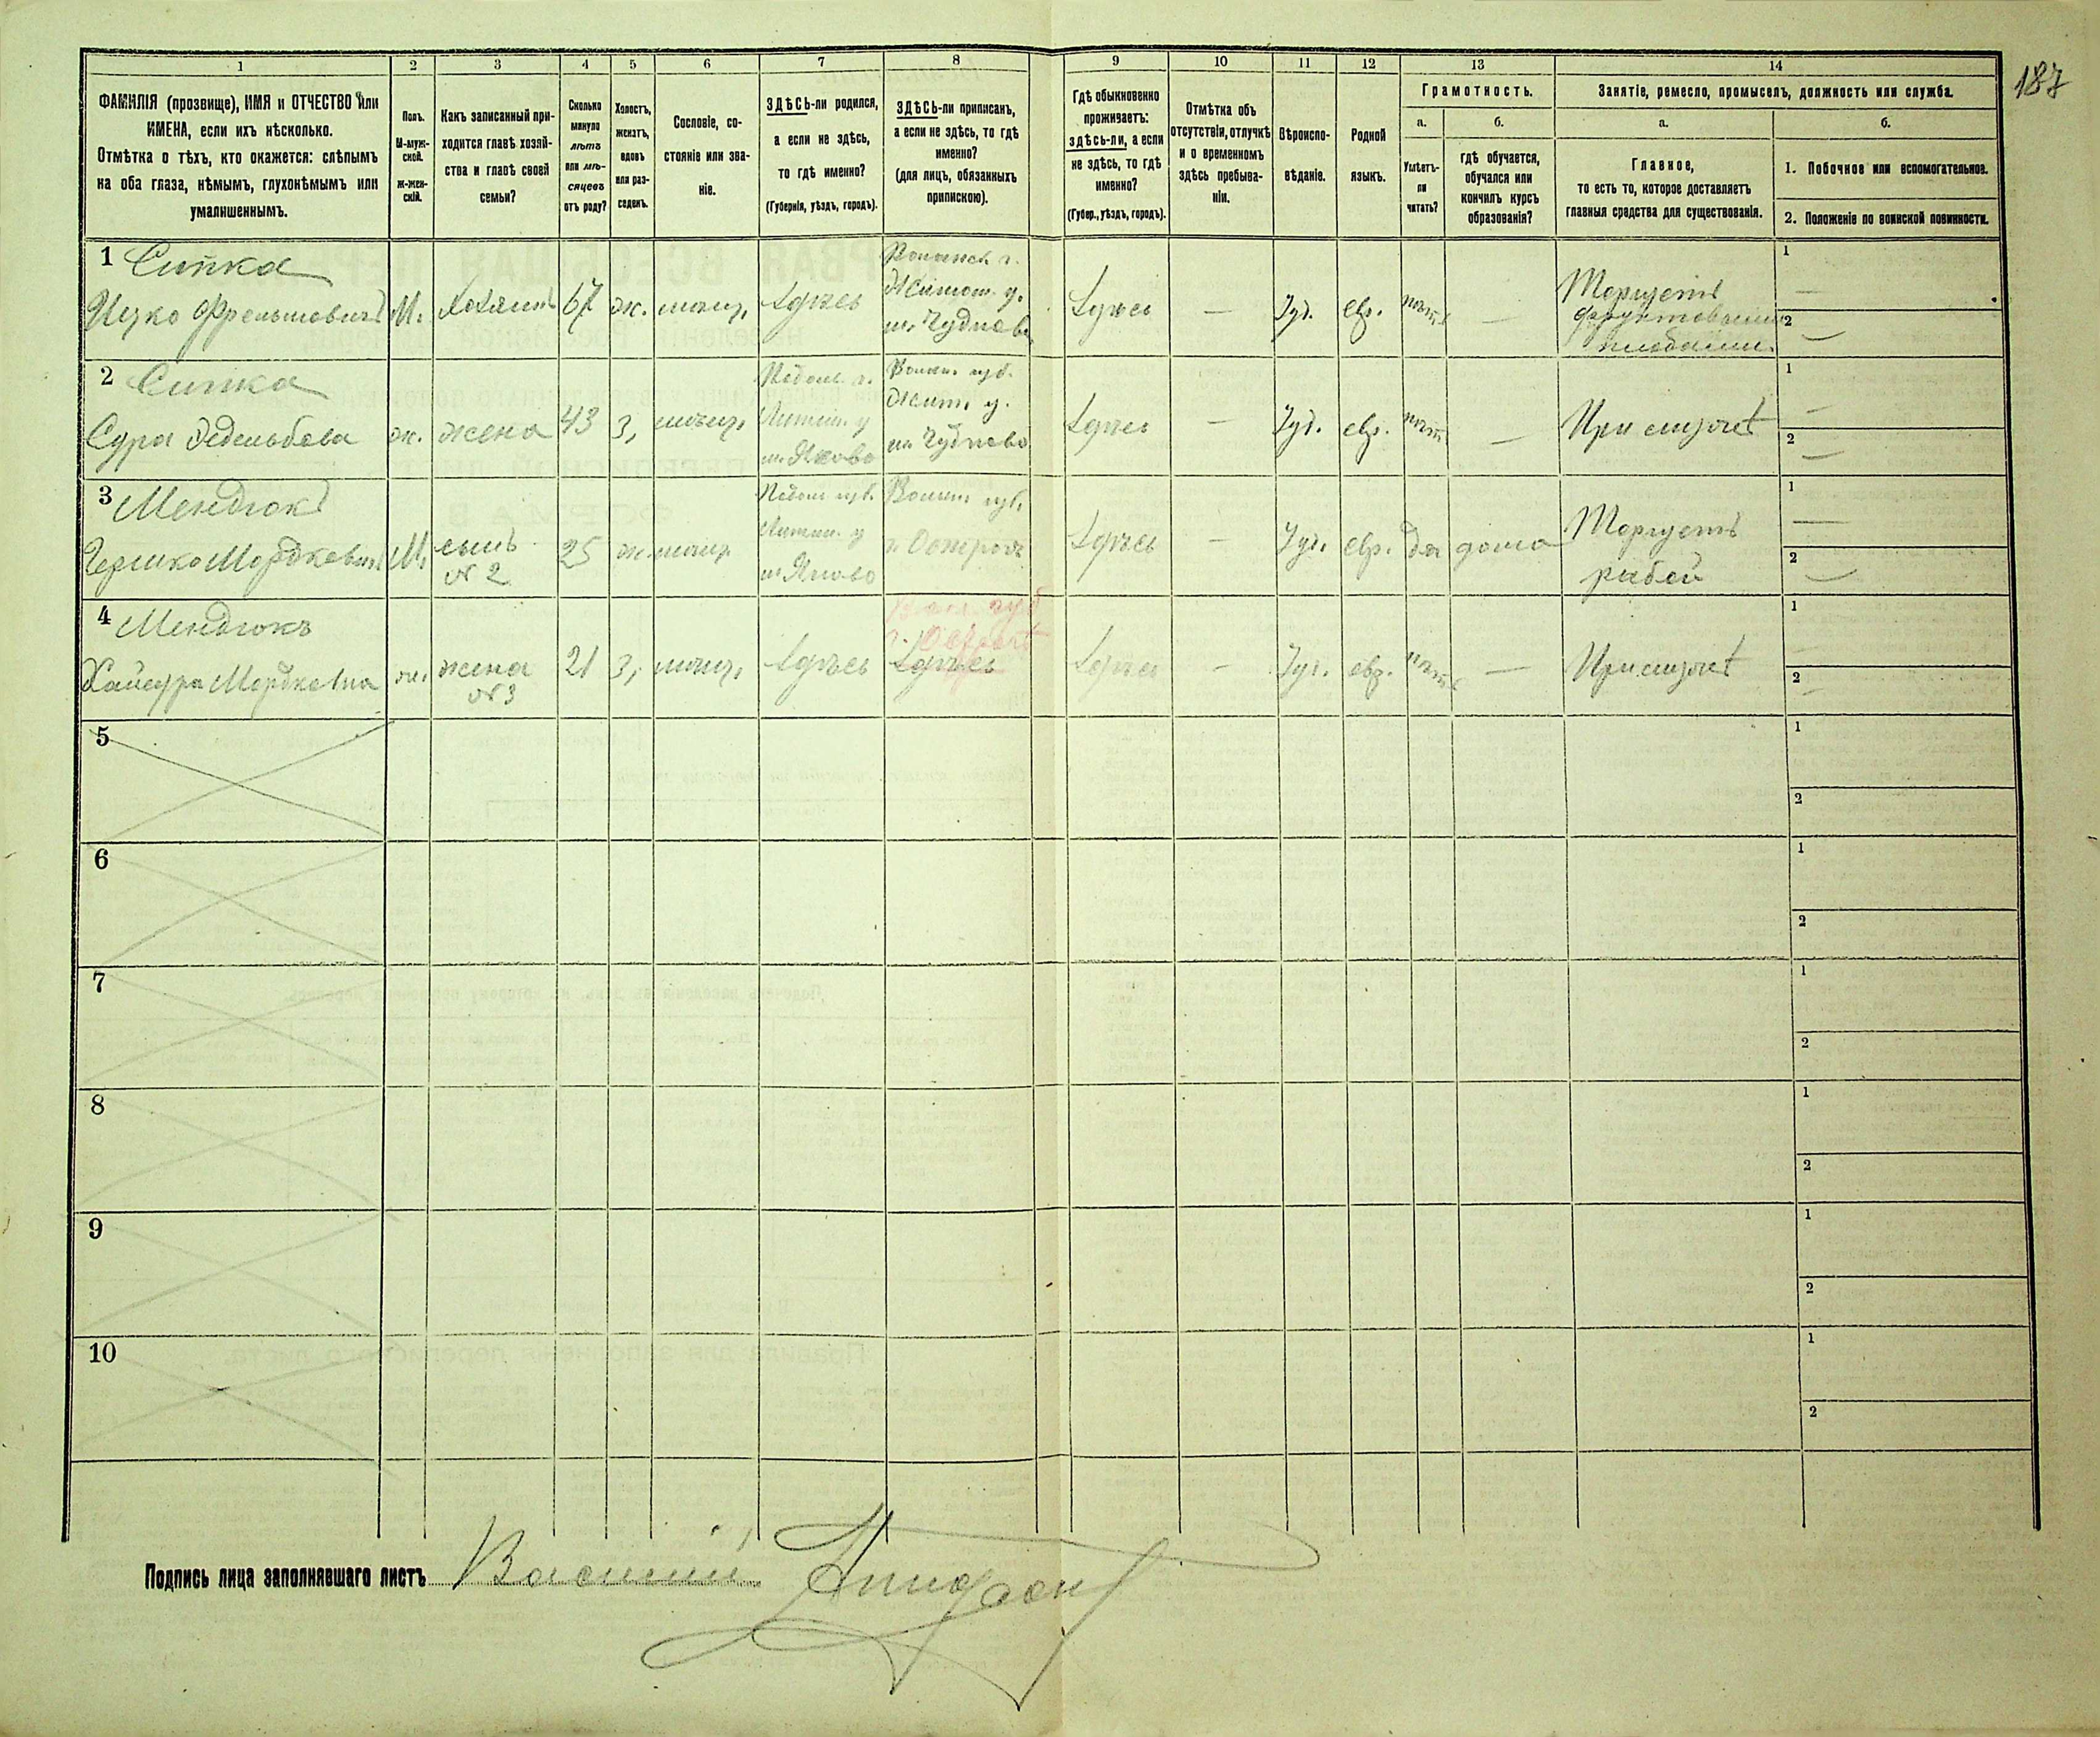 187
1 2 3 4 5 6 7 8 9 10 11 12 13 14
ФАМИЛІЯ (прозвище), ИМЯ и ОТЧЕСТВО или
ИМЕНА, если ихъ нѣсколько.
Отмѣтка о тѣхъ, кто окажется: слѣпымъ
на оба глаза, нѣмымъ, глухонѣмымъ или
умалишеннымъ.
Полъ.
М-муж-
ской.
Ж-жен-
скій.
Какъ записанный при-
ходится главѣ хозяй-
ства и главѣ своей
семьи?
Сколько
минуло
лѣтъ
или мѣ-
сяцевъ
отъ роду?
Холостъ,
женатъ,
вдовъ
или раз-
веденъ.
Сословіе, со-
стояніе или зва-
ніе.
ЗДѢСЬ-ли родился,
а если не здѣсь,
то гдѣ именно?
(Губернія, уѣздъ, городъ).
ЗДѢСЬ-ли приписанъ,
а если не здѣсь, то гдѣ
именно?
(для лицъ, обязанныхъ
припискою).
Гдѣ обыкновенно
проживаетъ:
здѣсь-ли, а если
не здѣсь, то гдѣ
именно?
(Губер., уѣздъ, городъ).
Отмѣтка объ
отсутствіи, отлучкѣ
и о временномъ
здѣсь пребыва-
ніи.
Вѣроиспо-
вѣданіе.
Родной
языкъ.
Грамотность.
а.
Умѣетъ-
ли
читать?
б.
гдѣ обучается,
обучался или
кончилъ курсъ
образованія?
Занятіе, ремесло, промыселъ, должность или служба.
а.
Главное,
то есть то, которое доставляетъ
главныя средства для существованія.
б.
1. Побочное или вспомогательное.
2. Положеніе по воинской повинности.
1 Сипка
Ицко М. хозяинъ 67 ж. мѣщ. Здѣсь
Житом. у.
м. Чудновъ
Здѣсь — Іуд. евр. нѣтъ —
Торгуетъ
фруктовыми
плодами.
1 —
2 —
2 Сипка
Сура ж. жена 43 з. мѣщ.
Подол. г.
Литин. у
м. Яново
Волын. губ.
Жит. у.
м. Чудново
Здѣсь — Іуд. евр. нѣтъ — При мужѣ
1 —
2 —
3 Мендюкъ
Гершко Мордковичъ М. сынъ
№ 2
25 ж. мѣщ.
Подол губ.
Литин. у
м. Яново
Волын губ.
г. Острогъ
Здѣсь — Іуд. евр. да дома
Торгуетъ
рыбой
1 —
2 —
4 Мендюкъ
Мордковна ж. жена
№ 3
21 з. мѣщ. Здѣсь
Вол. губ
Здѣсь
Здѣсь — Іуд. евр. нѣтъ — При мужѣ
1 —
2 —
5 1
2
6 1
2
7 1
2
8 1
2
9 1
2
10 1
2
Подпись лица заполнявшаго листъ Василій